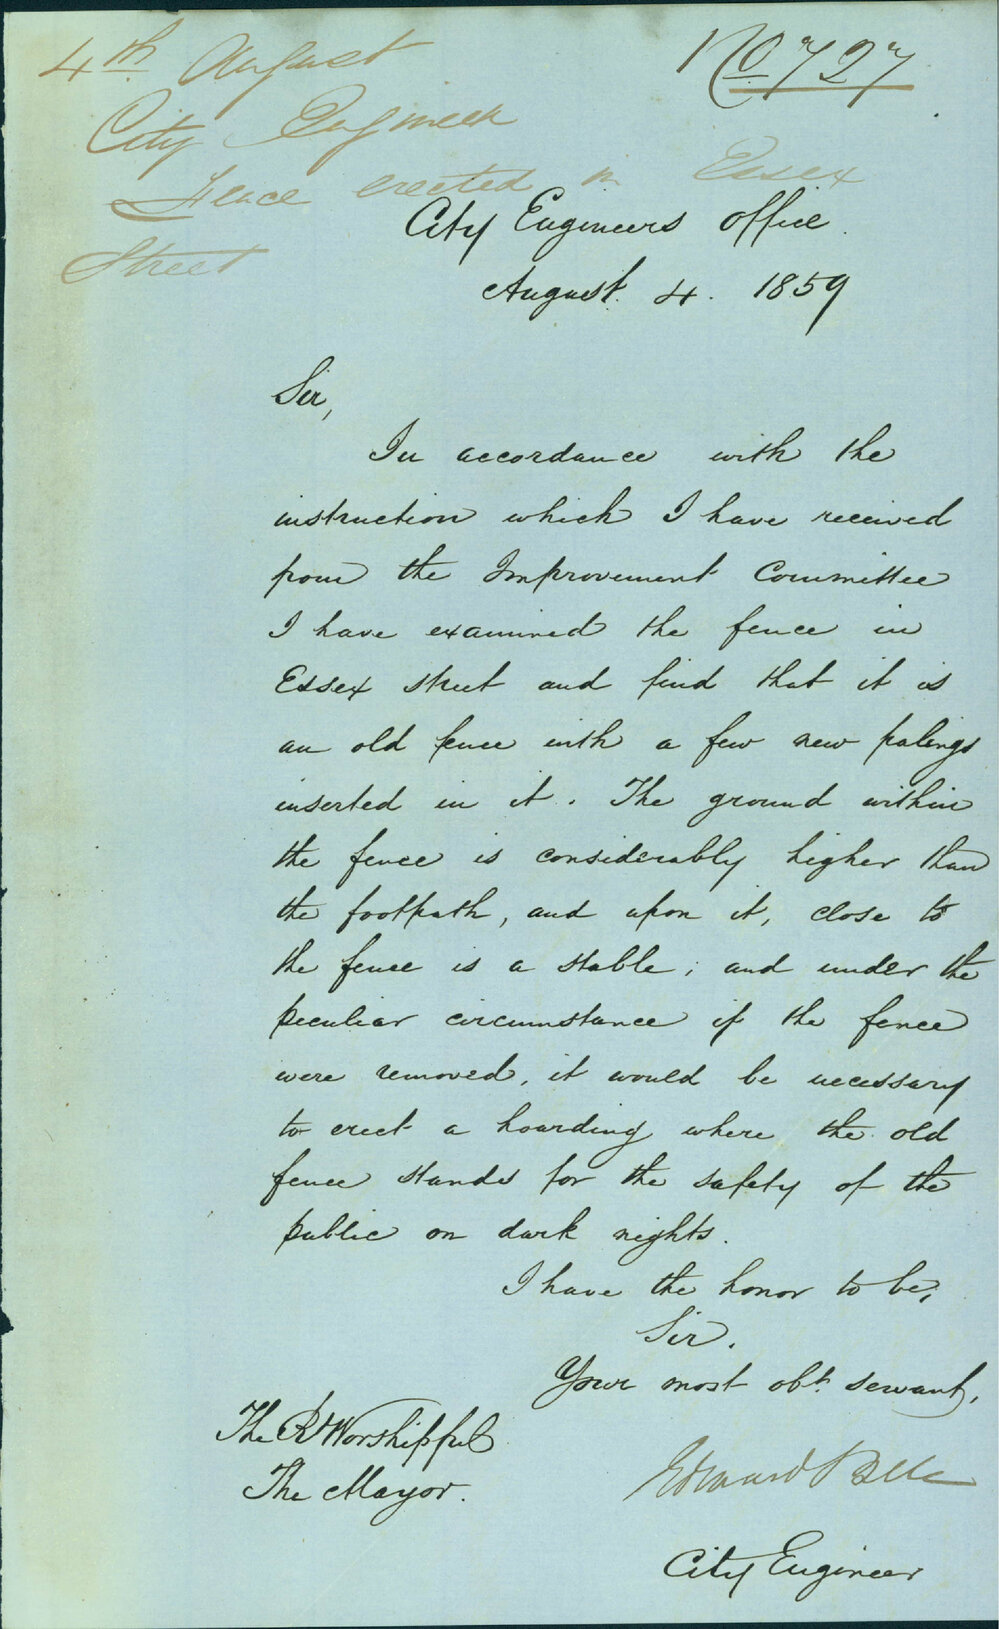 4th August
No 727
City Engineer
Fence erected in Essex
Street
City Engineers Office.
August. 4. 1859
Sir,
In accordance with the
instruction which I have received
from the Improvement Committee
I have examined the fence in
Essex street and find that it is
an old fence with a few new palings
inserted in it. The ground within
the fence is considerably higher than
the footpath, and upon it, close to
the fence is a stable; and under the
peculiar circumstance if the fence
were removed, it would be necessary
to erect a hoarding where the old
fence stands for the safety of the
public on dark nights.
I have the honor to be,
Sir.
Your most obt. servant,
The Rt Worshipful
The Mayor.
Edward Bell
City Engineer